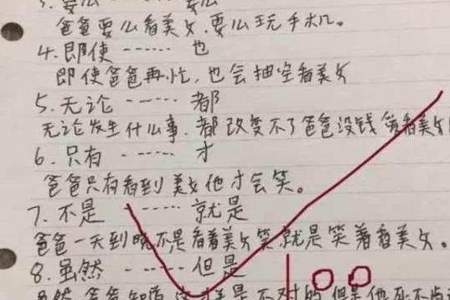 3. 要么 ······ 要么
爸爸要么看美女,要么玩手机。
4. 即使 ······ 也
即使爸爸再忙,也会抽空看美女
5. 无论 ······ 都
无论发生什么事,都改变不了爸爸没钱爱看美女
6. 只有 ······ 才
爸爸只有看到美女他才会笑。
7. 不是 ······ 就是
爸爸一天到晚不是看着美女笑就是笑着看美女。
8. 虽然 ······ 但是
虽然爸爸知道这样是不对的但是他
100